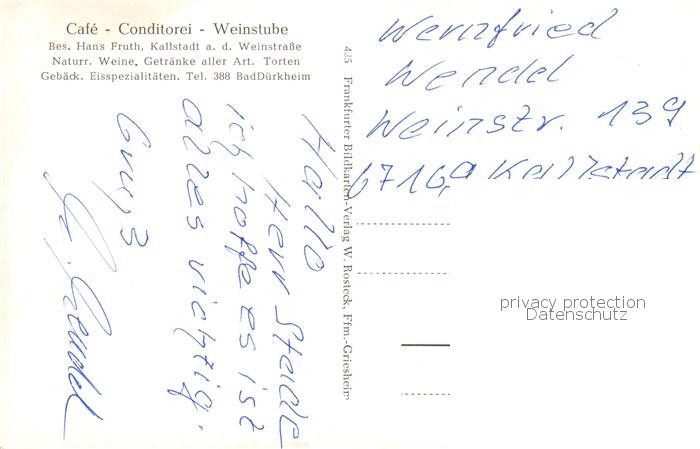 Café - Conditorei - Weinstube
Bes. Hans Fruth, Kallstadt a. d. Weinstraße
Naturr. Weine, Getränke aller Art. Torten
Gebäck. Eisspezialitäten. Tel. 388 BadDürkheim
Hallo
Herr Stade
ich hoffe es ist
alles richtig.
Gruß
W. Wendel
435 Frankfurter Bildkarten-Verlag W. Rosteck, Ffm.-Griesheim
Wernfried
Wendel
Weinstr. 139
6716 Kallstadt
privacy protection
Datenschutz